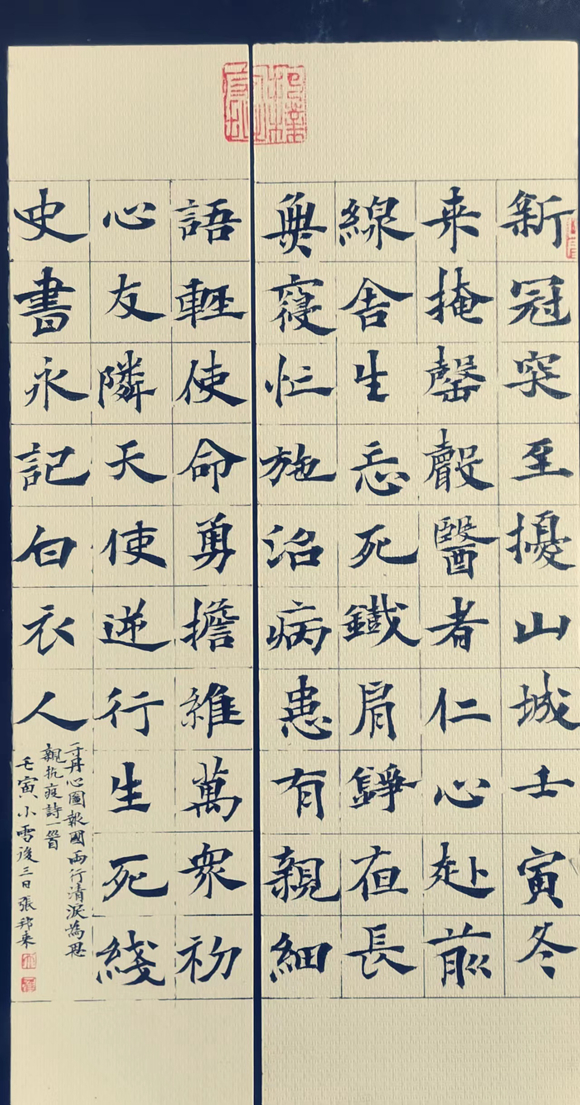 新冠突至擾山城壬寅冬
来掩罄聲醫者仁心赴前
線舍生忘死鐵肩錚夜長
無寢忙施治病患有親細
語輕使命勇擔維萬衆初
心友隣天使逆行生死綫
史書永記白衣人
一寸丹心圖報國兩行清淚為思
親抗疫詩一首
壬寅小雪後三日張邦来